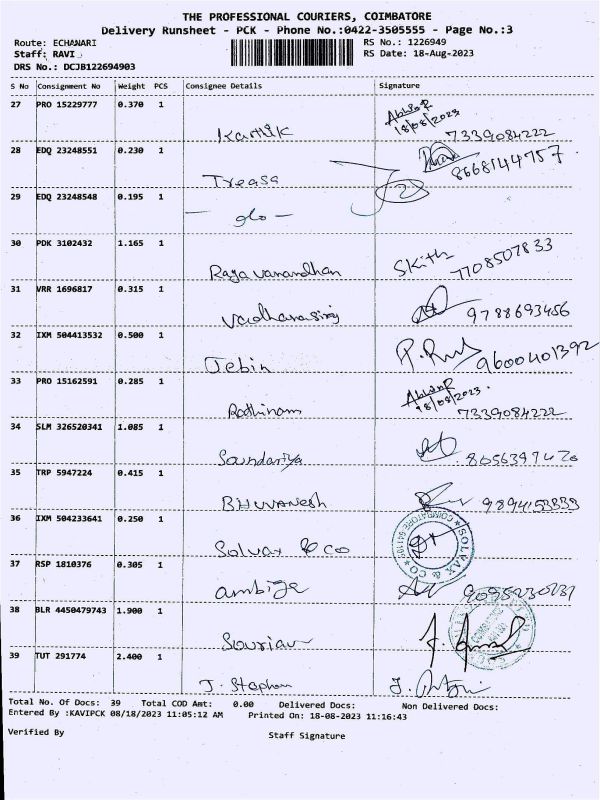 THE PROFESSIONAL COURIERS, COIMBATORE
Delivery Runsheet - PCK - Phone No.:0422-3505555 - Page No.:3
Route: ECHANARI RS No.: 1226949
Staff: RAVI RS Date: 18-Aug-2023
DRS No.: DCJB122694903
S No Consignment No Weight PCS Consignee Details Signature
27 PRO 15229777 0.370 1
18/08/2023
Karthik 7339084222
28 EDQ 23248551 0.230 1
8668144757
Treasa
29 EDQ 23248548 0.195 1 2
- do -
30 PDK 3102432 1.165 1
Skith
7708507833
31 VRR 1696817 0.315 1
9788693456
32 IXM 504413532 0.500 1
Jebin 9600401392
33 PRO 15162591 0.285 1
18/08/2023.
Rathinam 7339084222
34 SLM 326520341 1.085 1
Soundariya
35 TRP 5947224 0.415 1
BHUVANESH
36 IXM 504233641 0.250 1
Solvax & co
SOLVAX & CO
37 RSP 1810376 0.305 1
38 BLR 4450479743 1.900 1
39 TUT 291774 2.400 1
J. Stephen
Total No. Of Docs: 39 Total COD Amt: 0.00 Delivered Docs: Non Delivered Docs:
Entered By :KAVIPCK 08/18/2023 11:05:12 AM Printed On: 18-08-2023 11:16:43
Verified By Staff Signature